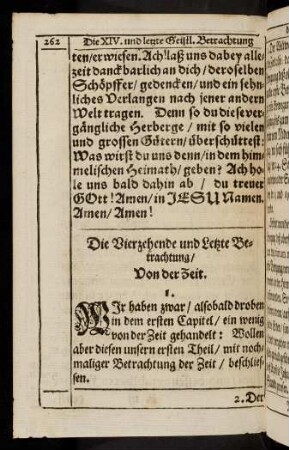 262
Die XIV. und letzte Geistl. Betrachtung
ten/erwiesen. Ach! laß uns dabey alle-
zeit danckbarlich an dich/deroselben
Schöpffer/gedencken/und ein sehn-
liches Verlangen nach jener andern
Welt tragen. Denn so du diese ver-
gängliche Herberge/mit so vielen
und grossen Gütern/überschüttest:
Was wirst du uns denn/in dem him-
melischen Heimath/geben? Ach ho-
le uns bald dahin ab / du treuer
GOtt! Amen/in JESU Namen.
Amen/Amen!
Die Vierzehende und Letzte Be-
trachtung/
Von der Zeit.
1.
WIr haben zwar/alsobald droben
in dem ersten Capitel/ein wenig
von der Zeit gehandelt: Wollen
aber diesen unsern ersten Theil/mit noch-
maliger Betrachtung der Zeit/beschlies-
sen.
2. Der